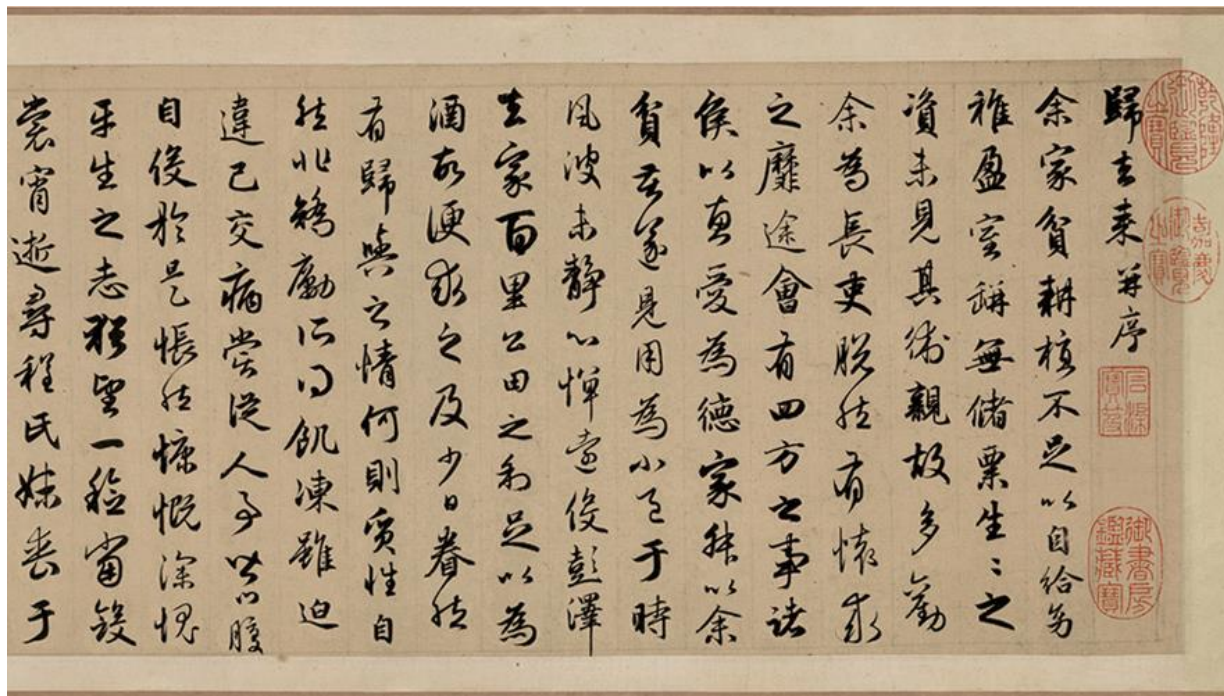 歸去來并序
余家貧耕植不足以自給幼
稚盈室缾無儲粟生〻之
資未見其術親故多勸
余為長吏脫然有懷求
之靡途會有四方之事諸
侯以惠愛為德家叔以余
貧苦遂見用為小邑于時
風波未靜心憚遠役彭澤
去家百里公田之利足以為
酒故便求之及少日眷然
有歸與之情何則質性自
然非矯勵所得飢凍雖迫
違己交病嘗從人事皆口腹
自役於是悵然慷慨深愧
平生之志猶望一稔當斂
裳宵逝尋程氏妹喪于
乾隆御覽之寶
嘉慶御覽之寶
石渠寶笈
御書房鑑藏寶